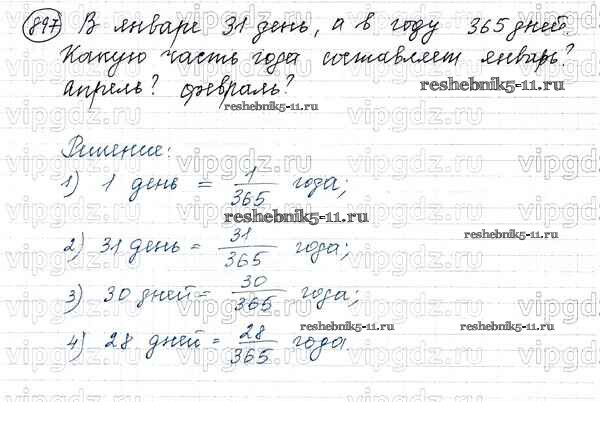 897 В январе 31 день, а в году 365 дней.
Какую часть года составляет январь?
апрель? февраль?
reshebnik5-11.ru
reshebnik5-11.ru
Решение:
1) 1 день = 1/365 года;
reshebnik5-11.ru
2) 31 день = 31/365 года;
reshebnik5-11.ru
3) 30 дней = 30/365 года;
4) 28 дней = 28/365 года.
reshebnik5-11.ru
reshebnik5-11.ru
vipgdz.ru